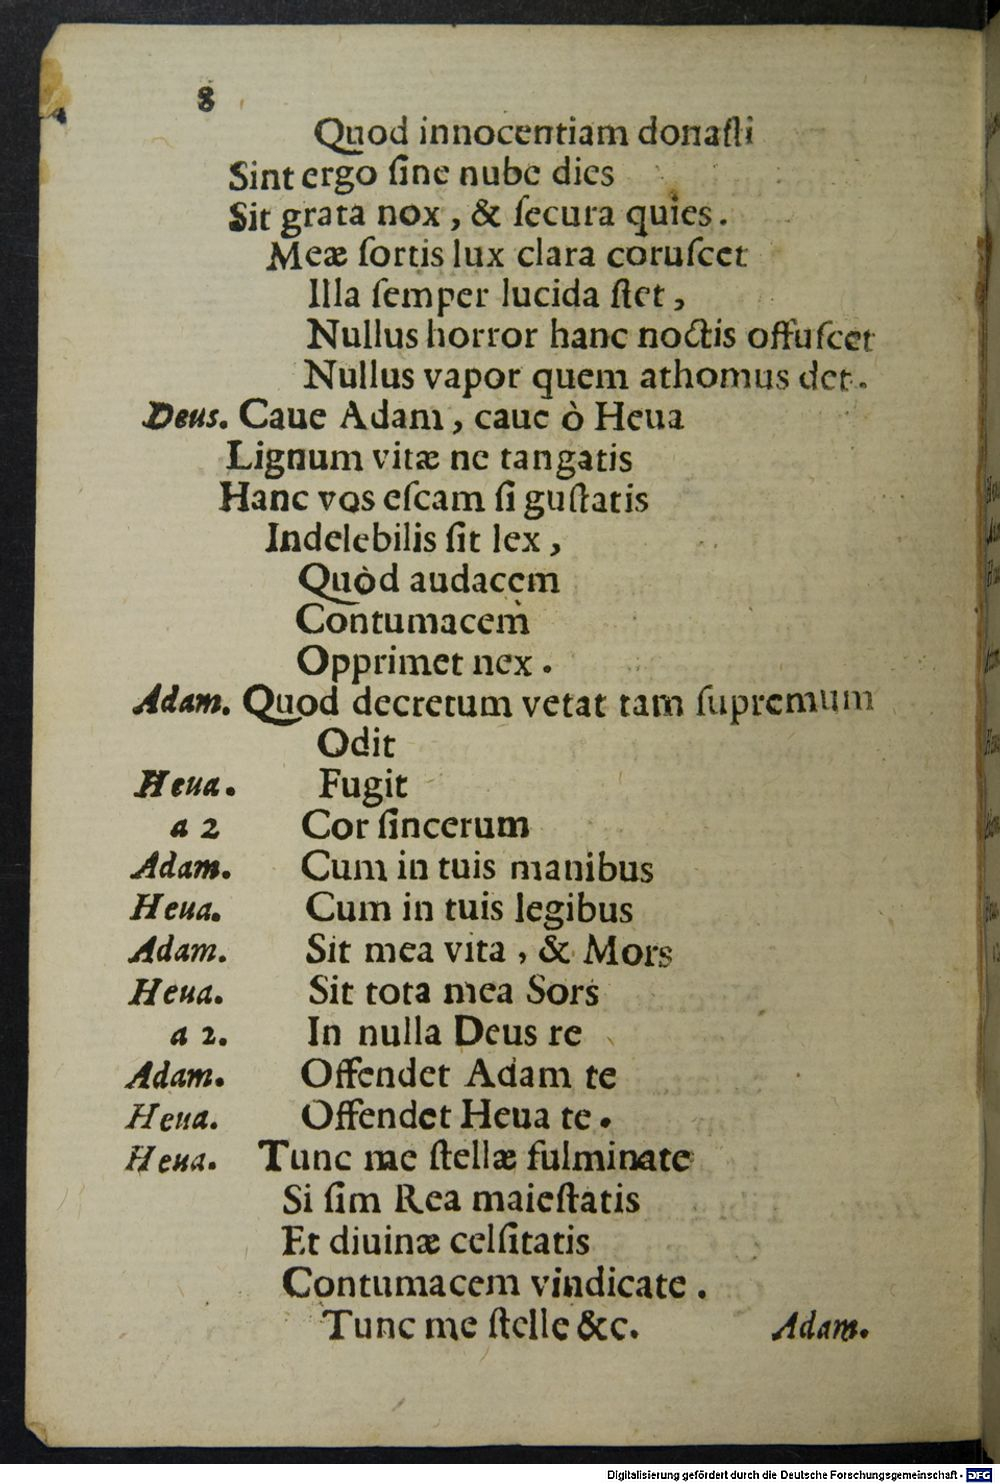 8
Quod innocentiam donaſti
Sint ergo ſine nube dies
Sit grata nox, & ſecura quies.
Meæ ſortis lux clara coruſcet
Illa ſemper lucida ſtet,
Nullus horror hanc noctis offuſcet
Nullus vapor quem athomus det.
Deus. Caue Adam, caue ò Heua
Lignum vitæ ne tangatis
Hanc vos eſcam ſi guſtatis
Indelebilis ſit lex,
Quòd audacem
Contumacem
Opprimet nex.
Adam. Quod decretum vetat tam ſupremum
Odit
Heua. Fugit
a 2 Cor ſincerum
Adam. Cum in tuis manibus
Heua. Cum in tuis legibus
Adam. Sit mea vita, & Mors
Heua. Sit tota mea Sors
a 2. In nulla Deus re
Adam. Offendet Adam te
Heua. Offendet Heua te.
Heua. Tunc me ſtellæ fulminate
Si ſim Rea maieſtatis
Et diuinæ celſitatis
Contumacem vindicate.
Tunc me ſtelle &c. Adam.
Digitalisierung gefördert durch die Deutsche Forschungsgemeinschaft - DFG